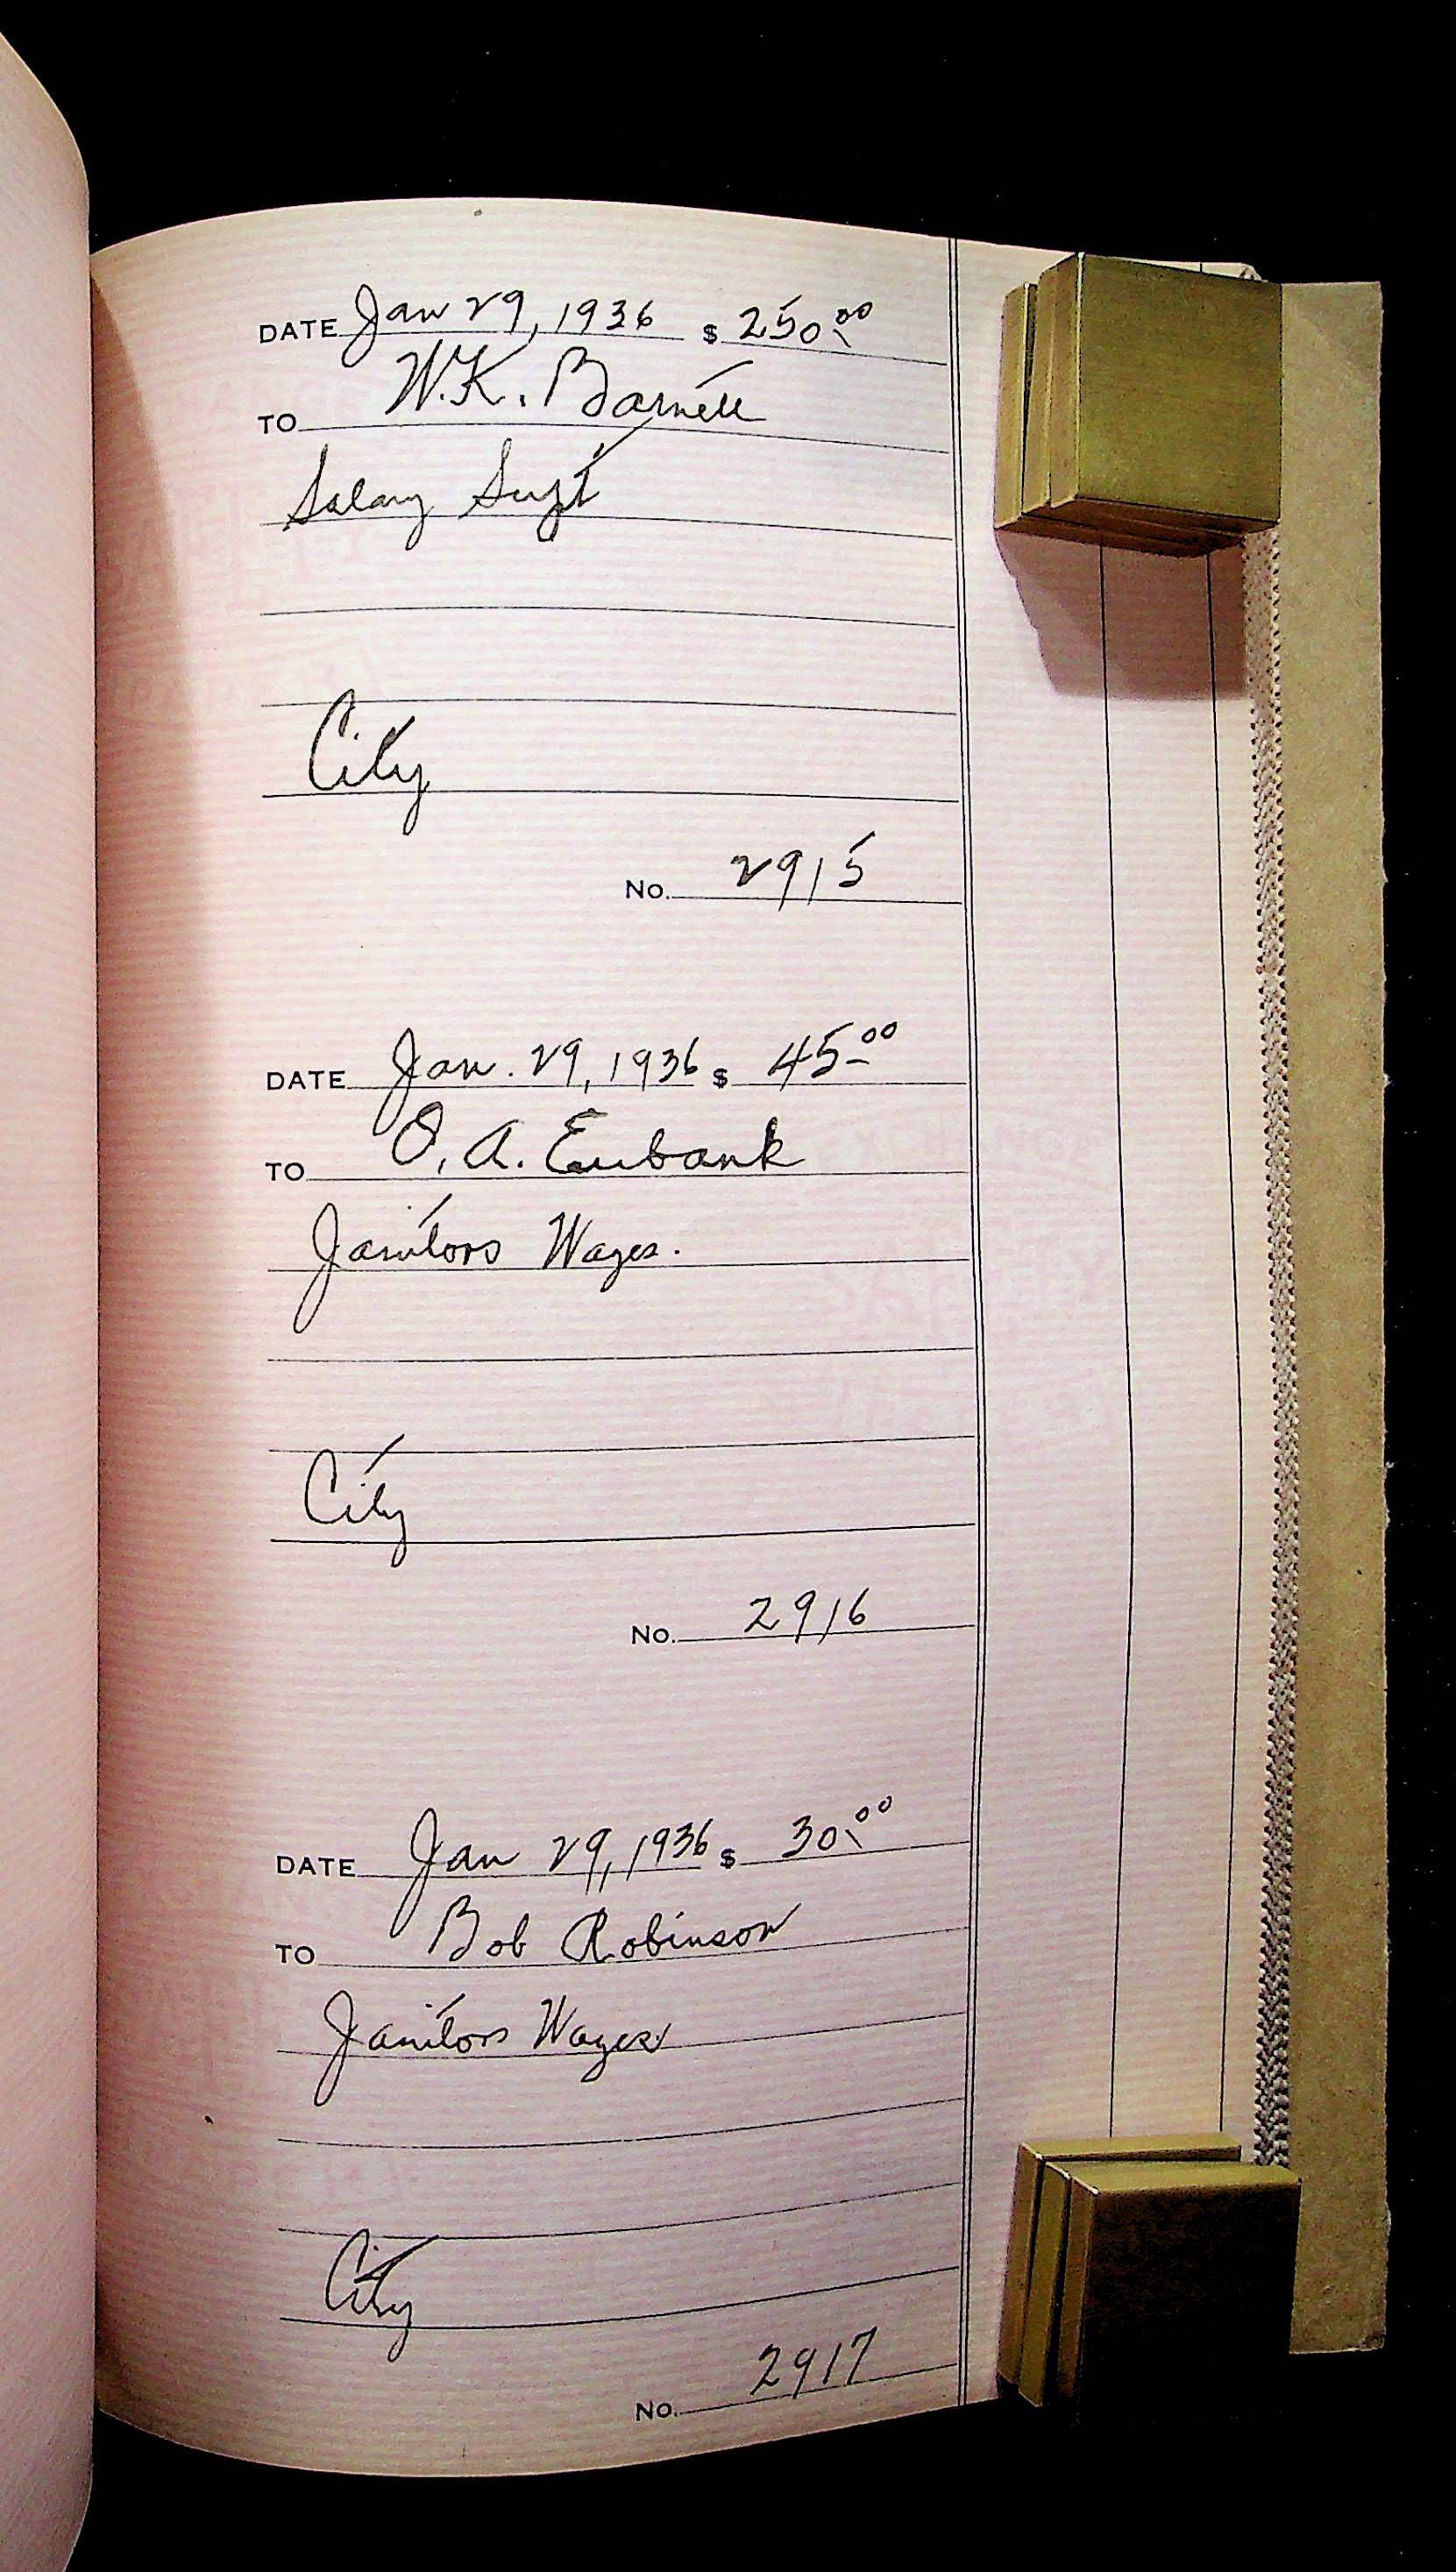 DATE Jan 29, 1936 $ 250.00
TO W.K. Barnett
Salary Supt
City
No. 2915
DATE Jan. 29, 1936 $ 45.00
TO O. A. Eubank
Janitors Wages.
City
No. 2916
DATE Jan 29, 1936 $ 30.00
TO Bob Robinson
Janitors Wages
City
No. 2917